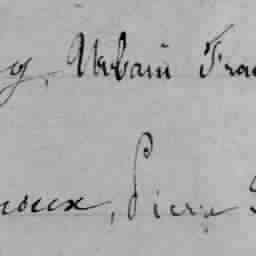 y, Urbain Fra
oux, Pierre